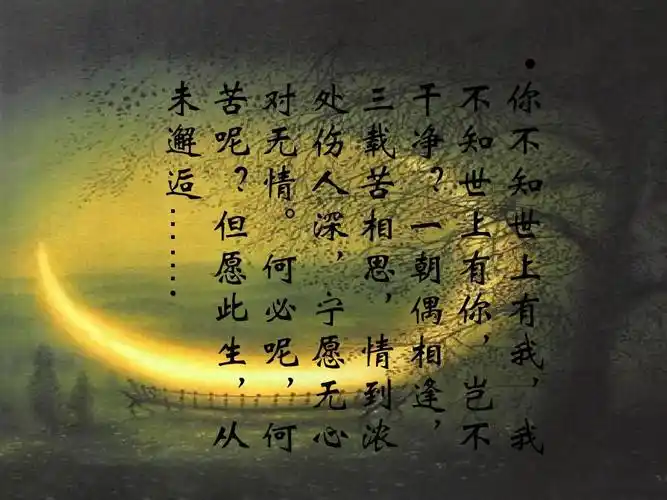 •你不知世上有我，我
不知世上有你，岂不
干净？一朝偶相逢，
三载苦相思，情到浓
处伤人深，宁愿无心
对无情。何必呢，何
苦呢？但愿此生，从
未邂逅.......